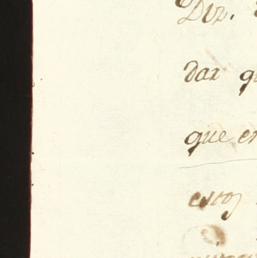 Diz.
dar q
que en
estos